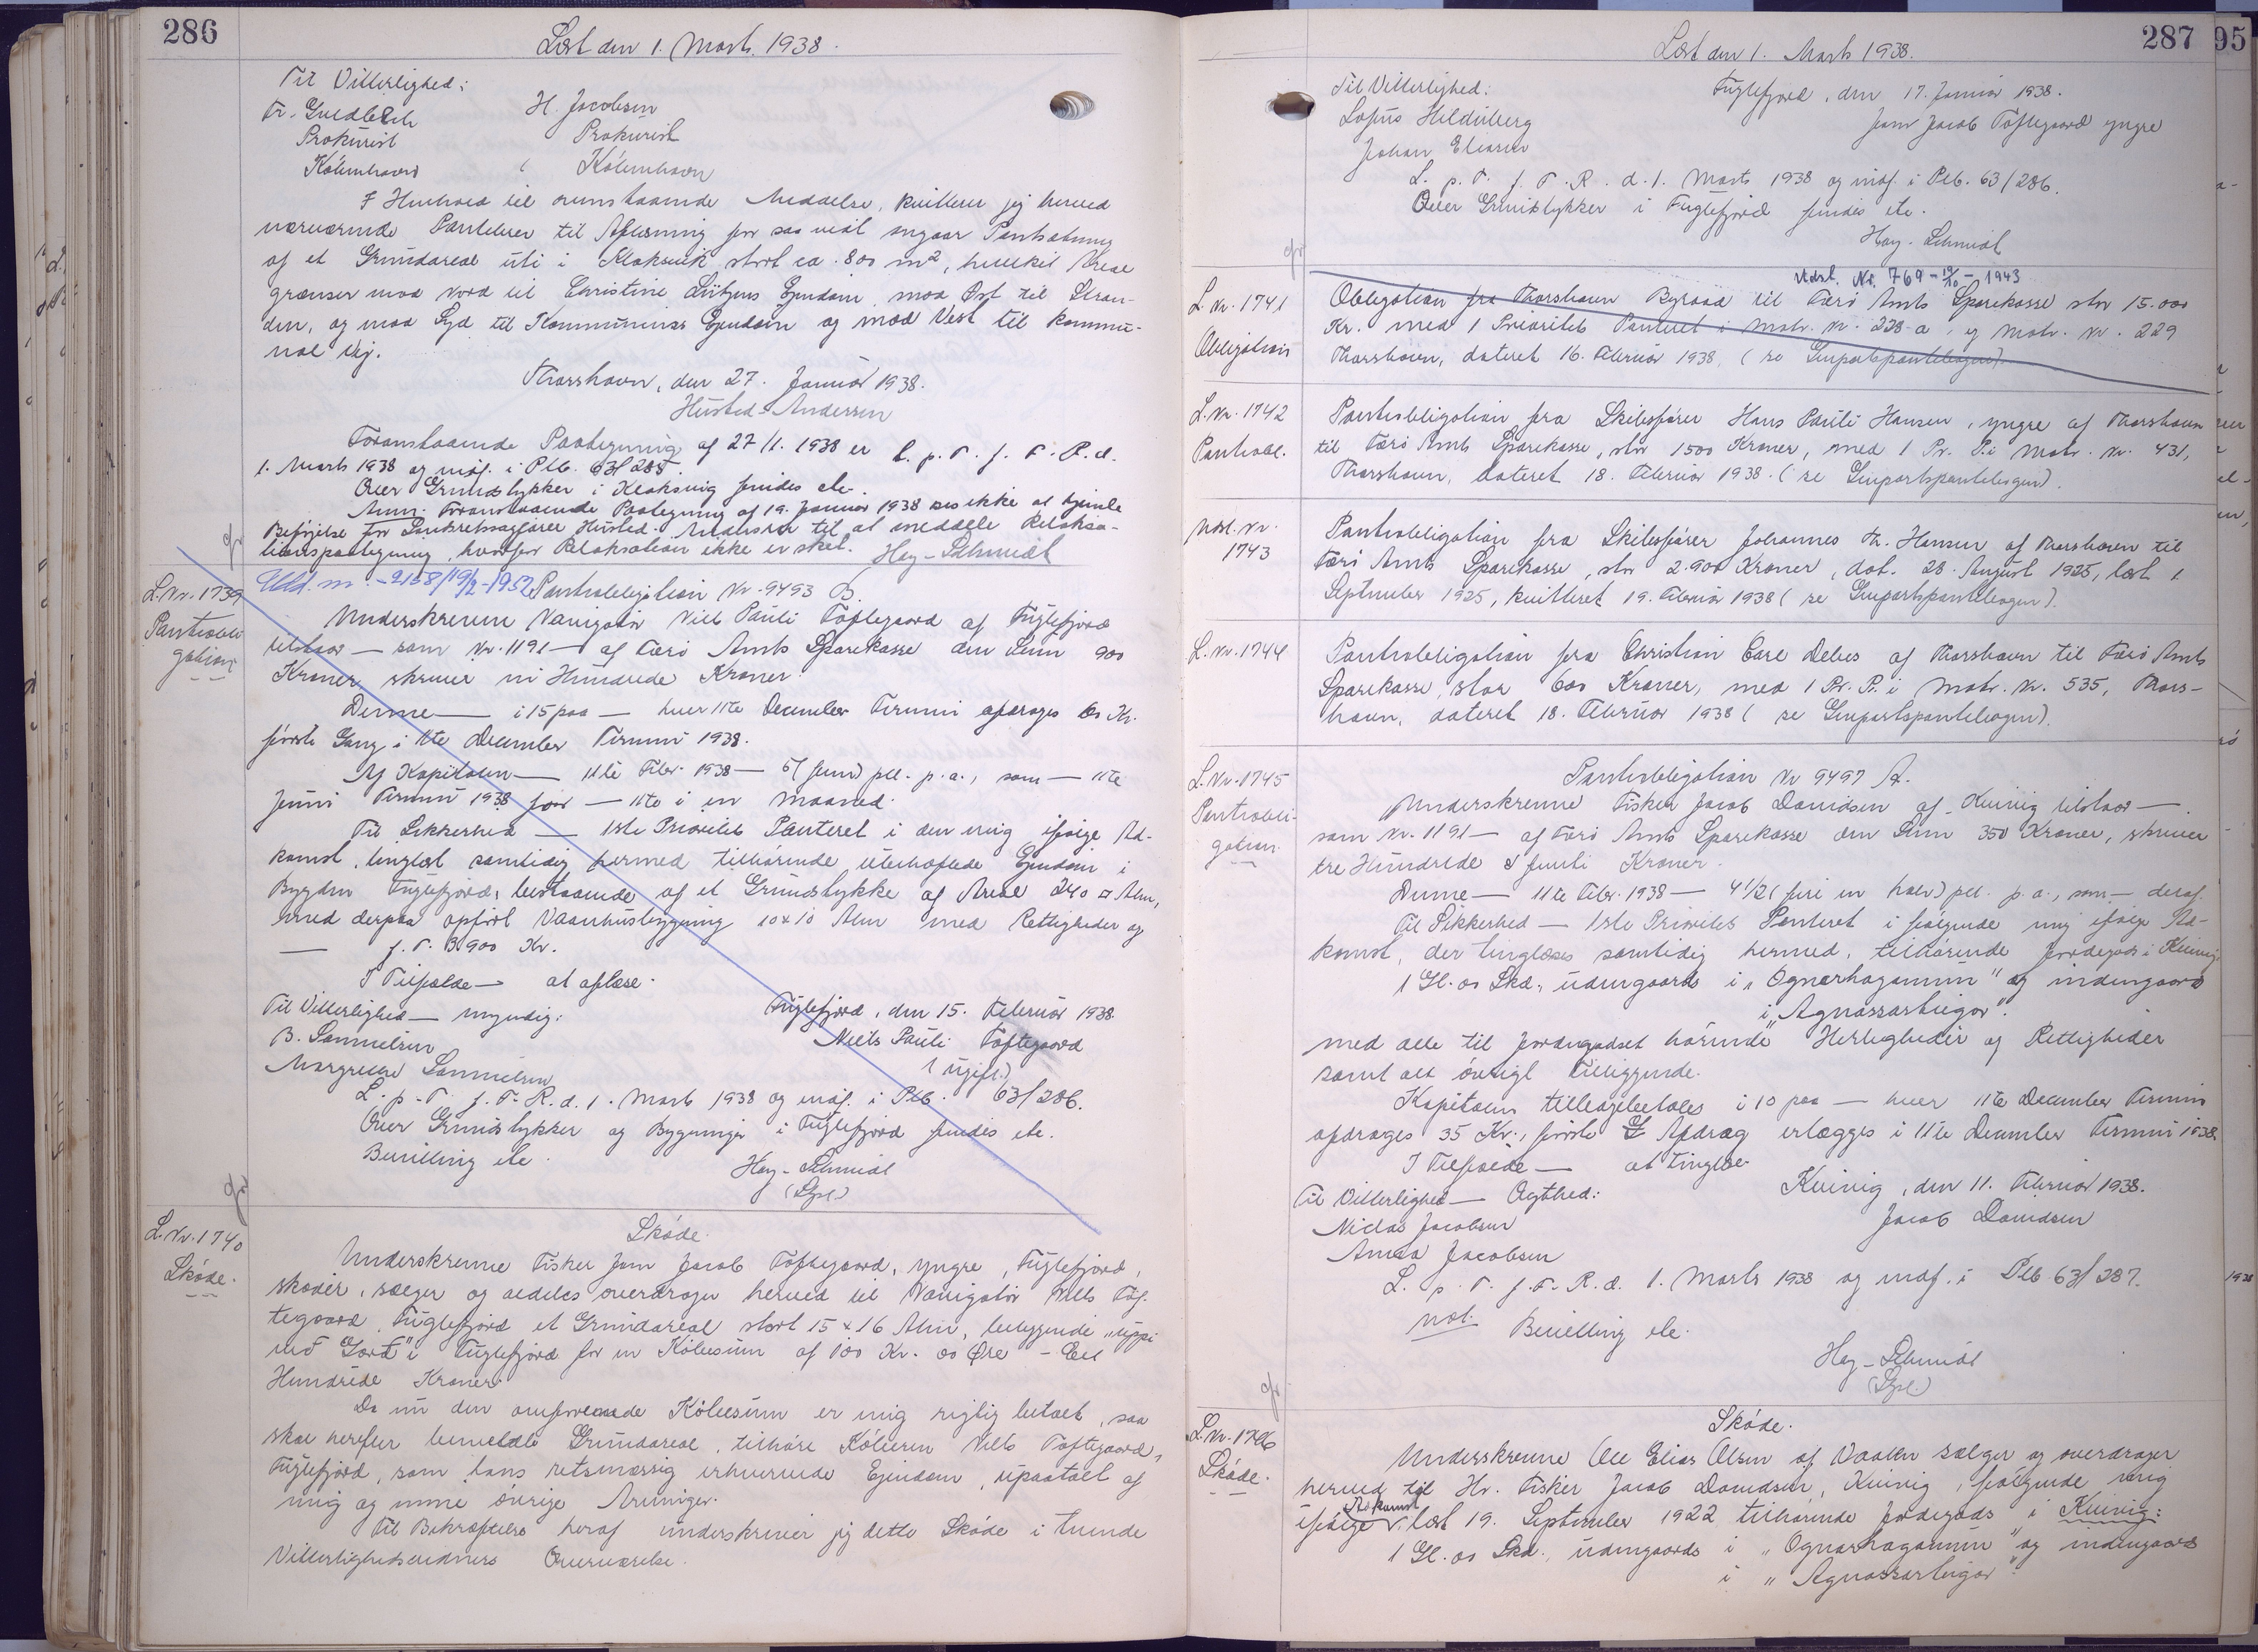 286
Læst den 1. Marts 1938.
Til Vitterlighed:
H. Jacobsen
Prokurist
Prokurist
København
København
I Henhold til ovenstaaende Meddelse, kvitterer jeg herved
nærværende Pantebrev til Aflæsning for saa vidt angaar Pantsætning
af et Grundareal uti i Klaksvik stort ca. 800 m², hvilket Areal
grænser mod Nord til Christine Lützens Ejendom, mod Øst til Stran-
den, og mod Syd til Kommunens Ejendom og mod Vest til kommu-
nal Vej.
Thorshavn, den 27. Januar 1938.
Husted-Andersen
Foranstaaende Paategning af 27/1. 1938 er L. p. T. f. F. R. d.
1. Marts 1938 og indf. i Ptb. 63/285.
Over Grundstykker i Klaksvig findes etc.
Anm. Foranstaaende Paategning af 19. Januar 1938 ses ikke at hjemle
Beføjelse for Landsretssagfører Husted-Andersen til at meddele Relaksa-
tionspaategning, hvorfor Relaksation ikke er sket. Hey-Schmidt
L. Nr. 1739
Pantobli
gation
Udsl. nr. - 2158/19/2-1952
Pantobligation Nr. 9493 B.
Underskrevne Navigatør Niels Pauli Toftegaard af Fuglefjord
tilstaar — som Nr. 1191 — af Færø Amts Sparekasse den Sum 900
Kroner, skriver ni Hundrede Kroner.
Denne — i 15 paa — hver 11te December Termin afdrages 60 Kr.
første Gang i 11te December Termin 1938.
Af Kapitalen — 11te Febr. 1938 — 5 (fem) pct. p.a., som — 11te
Juni Termin 1938 for — 11te i en Maaned.
Til Sikkerhed — 1ste Prioritets Panteret i den mig ifølge Ad-
komst, tinglæst samtidig hermed tilhørende, ubehæftede Ejendom i
Bygden Fuglefjord, bestaaende af et Grundstykke af Areal 240 □ Alen,
med derpaa opført Vaaningshusbygning 10x10 Alen med Rettigheder og
— f. T. 3900 Kr.
I Tilfælde — at aflæse.
Til Vitterlighed — myndig:
Fuglefjord, den 15. Februar 1938.
B. Samuelsen
Niels Pauli Toftegaard
Margrethe Samuelsen
(ugift.)
L. p. T. f. F. R. d. 1. Marts 1938 og indf. i Ptb. 63/286.
Over Grundstykker og Bygninger i Fuglefjord findes etc.
Bevilling etc.
Hey-Schmidt
L. Nr. 1740
Skøde.
Skøde.
Underskrevne Fisker Jens Jacob Toftegaard, yngre, Fuglefjord,
skøder, sælger og aldeles overdrager herved til Navigatør Niels Tof-
tegaard, Fuglefjord et Grundareal stort 15 x 16 Alen, beliggende „uppi
við Gørd" i Fuglefjord for en Købesum af 100 Kr. 00 Øre - Eet
Hundrede Kroner.
Da nu den omforenede Købesum er mig rigtig betalt, saa
skal herefter bemeldte Grundareal, tilhøre Køberen Niels Toftegaard,
Fuglefjord, som hans retsmæssig erhvervede Ejendom, upaatalt af
mig og mine øvrige Arvinger.
Til Bekræftelse heraf underskriver jeg dette Skøde i tvende
Vitterlighedsvidners Overværelse.
287
95
Læst den 1. Marts 1938.
Til Vitterlighed:
Fuglefjord, den 17. Januar 1938.
Jens Jacob Toftegaard yngre
Johan Eliasen
L. p. T. f. F. R. d. 1. Marts 1938 og indf. i Ptb. 63/286.
Over Grundstykker i Fuglefjord findes etc.
Hey-Schmidt
Udsl. Nr. 769 - 19/10 - 1943
L. Nr. 1741
Obligation
Obligation fra Thorshavn Byraad til Færø Amts Sparekasse stor 15.000
Kr. med 1 Prioritets Panteret i Matr. Nr. 228a, og Matr. Nr. 229
Thorshavn, dateret 16. Februar 1938, (se Genpartspantebogen).
L. Nr. 1742
Pantobl.
Pantobligation fra Skibsfører Hans Pauli Hansen, yngre af Thorshavn
til Færø Amts Sparekasse, stor 1500 Kroner, med 1 Pr. P. i Matr. Nr. 431,
Thorshavn, dateret 18. Februar 1938. (se Genpartspantebogen).
Udsl. Nr.
1743
Pantobligation fra Skibsfører Johannes Th. Hansen af Thorshavn til
Færø Amts Sparekasse, stor 2.900 Kroner, dat. 28. August 1925, læst 1
September 1925, kvitteret 19. Februar 1938 (se Genpartspantebogen).
L. Nr. 1744
Pantobligation fra Christian Carl Debes af Thorshavn til Færø Amts
Sparekasse, stor 600 Kroner, med 1 Pr. P. i Matr. Nr. 535, Thors-
havn, dateret 18. Februar 1938 (se Genpartspantebogen).
L. Nr. 1745
Pantobli-
gation.
Pantobligation Nr 9497 A.
Underskrevne Fisker Jacob Davidsen af Kvivig tilstaar —
som Nr. 1191 — af Færø Amts Sparekasse den Sum 350 Kroner, skriver
tre Hundrede & femti Kroner.
Denne — 11te Febr. 1938 — 4 1/2 (fire en halv) pct. p. a., som — deraf.
Til Sikkerhed — 1ste Prioritets Panteret i følgende mig ifølge Ad-
komst, der tinglæses samtidig hermed, tilhørende Jordegods i Kvivig:
1 Gl. 00 Skd., udengaards i „Ognarhaganum" og indengaards
i „Agnassartrigar".
med alle til Jordegodset hørende Herligheder og Rettigheder
samt alt øvrigt Tilliggende.
Kapitalen tilbagebetales i 10 paa — hver 11te December Termin
afdrages 35 Kr., første Afdrag erlægges i 11te December Termin 1938.
I Tilfælde — at tinglæse.
Til Vitterlighed — Ægthed:
Kvivig, den 11. Februar 1938.
Niclas Jacobsen
Jacob Davidsen
Anna Jacobsen
L. p. T. f. F. R. d. 1. Marts 1938 og indf. i Ptb 63/287.
not. Bevilling etc.
Hey-Schmidt
L. Nr. 1746
Skøde.
Skøde.
Underskrevne Ole Elias Olsen af Vaalen sælger og overdrager
herved til Hr. Fisker Jacob Davidsen, Kvivig, følgende mig
ifølge Adkomst læst 19. September 1922 tilhørende Jordegods i Kvivig:
1 Gl. 00 Skd., udengaards i „Ognarhaganum" og indengaards
i „Agnassartrigar".